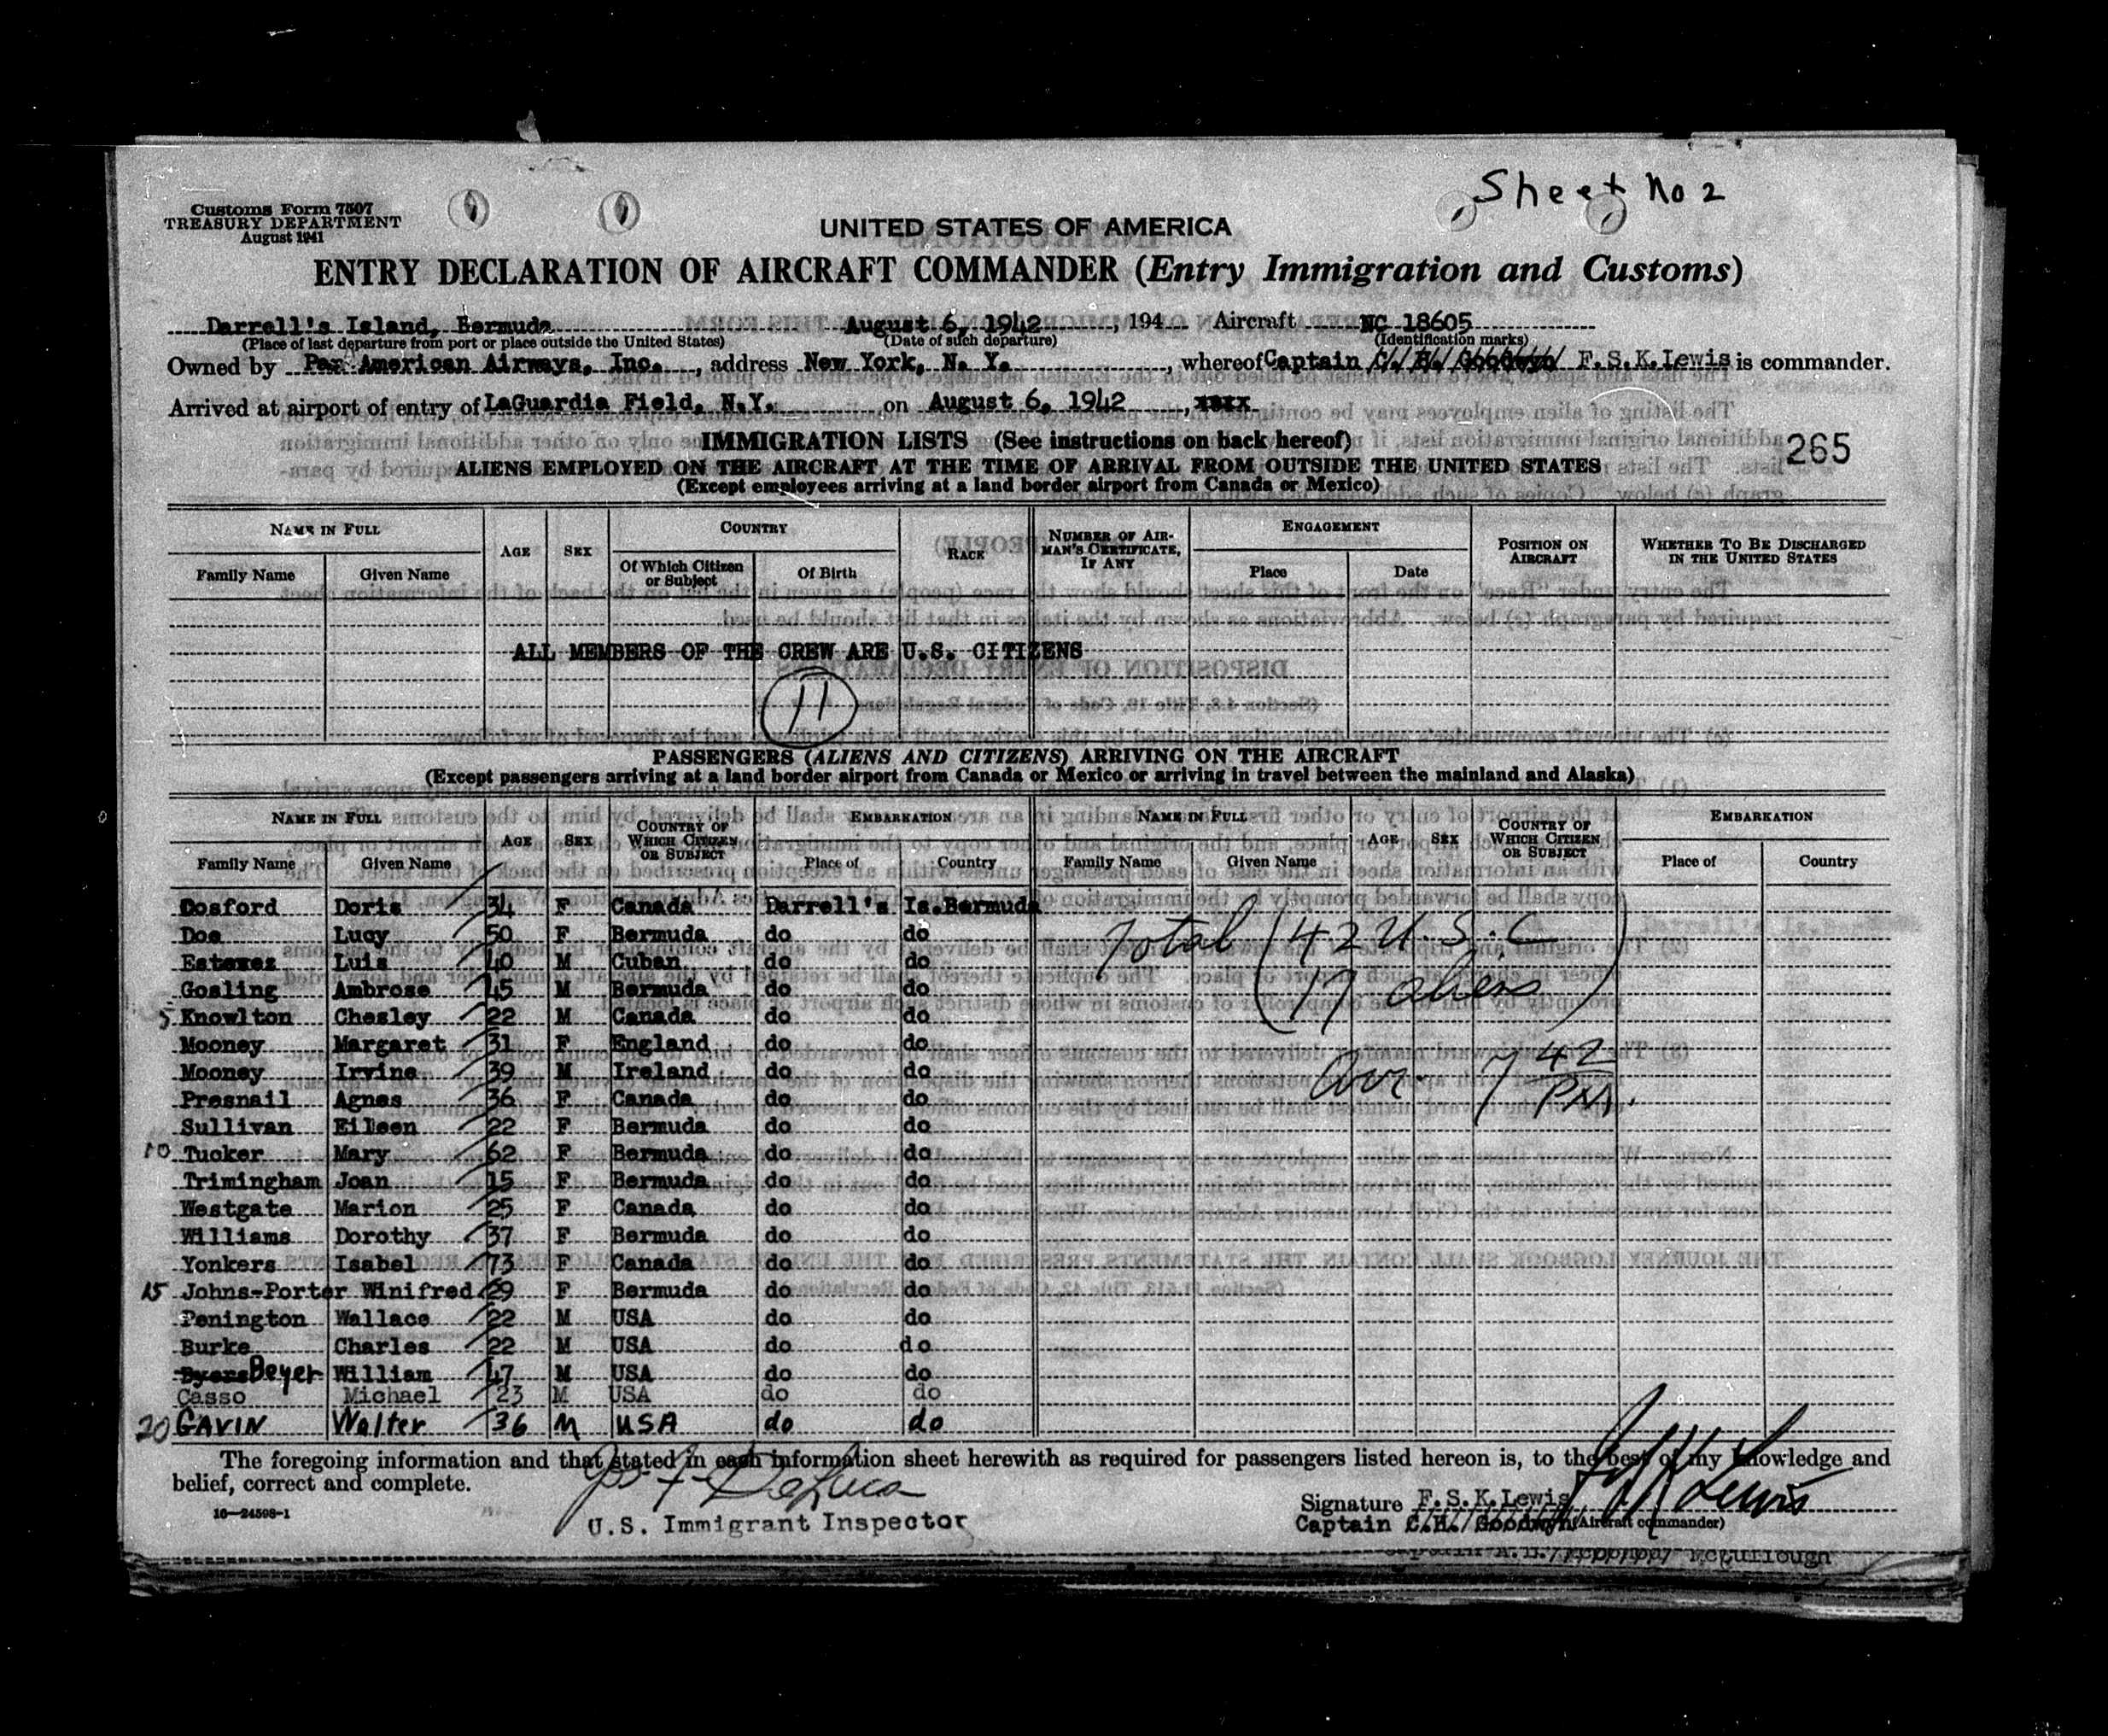 Sheet No 2
Customs Form 7507
TREASURY DEPARTMENT
August 1941
UNITED STATES OF AMERICA
ENTRY DECLARATION OF AIRCRAFT COMMANDER (Entry Immigration and Customs)
Darrell's Island, Bermuda August 6, 1942, 194 Aircraft NC 18605
(Place of last departure from port or place outside the United States) (Date of such departure) (Identification marks)
Owned by Pan American Airways, Inc., address New York, N. Y., whereof Captain C. H. Goodwyn F. S. K. Lewis is commander.
Arrived at airport of entry of LaGuardia Field, N.Y. on August 6, 1942, xxxx
IMMIGRATION LISTS (See instructions on back hereof)
265
ALIENS EMPLOYED ON THE AIRCRAFT AT THE TIME OF ARRIVAL FROM OUTSIDE THE UNITED STATES
(Except employees arriving at a land border airport from Canada or Mexico)
NAME IN FULL AGE SEX COUNTRY RACE NUMBER OF AIRMAN'S CERTIFICATE, IF ANY ENGAGEMENT POSITION ON AIRCRAFT WHETHER TO BE DISCHARGED IN THE UNITED STATES
Family Name Given Name Of Which Citizen or Subject Of Birth Place Date
ALL MEMBERS OF THE CREW ARE U.S. CITIZENS
11
PASSENGERS (ALIENS AND CITIZENS) ARRIVING ON THE AIRCRAFT
(Except passengers arriving at a land border airport from Canada or Mexico or arriving in travel between the mainland and Alaska)
NAME IN FULL AGE SEX COUNTRY OF WHICH CITIZEN OR SUBJECT EMBARKATION NAME IN FULL AGE SEX COUNTRY OF WHICH CITIZEN OR SUBJECT EMBARKATION
Family Name Given Name Place of Country Family Name Given Name Place of Country
Cosford Doris 34 F Canada Darrell's Is. Bermuda
Doe Lucy 50 F Bermuda do do Total (42 U.S.C
Estevez Luis 40 M Cuban do do
Gosling Ambrose 45 M Bermuda do do 17 aliens)
5 Knowlton Chesley 22 M Canada do do
Mooney Margaret 31 F England do do
Mooney Irvine 39 M Ireland do do Arr. 7 42
Presnail Agnes 36 F Canada do do PM.
Sullivan Eileen 22 F Bermuda do do
10 Tucker Mary 62 F Bermuda do do
Trimingham Joan 15 F Bermuda do do
Westgate Marion 25 F Canada do do
Williams Dorothy 37 F Bermuda do do
Yonkers Isabel 73 F Canada do do
15 Johns-Porter Winifred 29 F Bermuda do do
Penington Wallace 22 M USA do do
Burke Charles 22 M USA do do
Byers Beyer William 47 M USA do do
Casso Michael 23 M USA do do
20 GAVIN Walter 36 M USA do do
The foregoing information and that stated in each information sheet herewith as required for passengers listed hereon is, to the best of my knowledge and
belief, correct and complete.
Jos F DeLuca
U.S. Immigrant Inspector
Signature F. S. K. Lewis F S K Lewis
Captain C.H. Goodwyn (Aircraft commander)
16—24598-1
McCullough